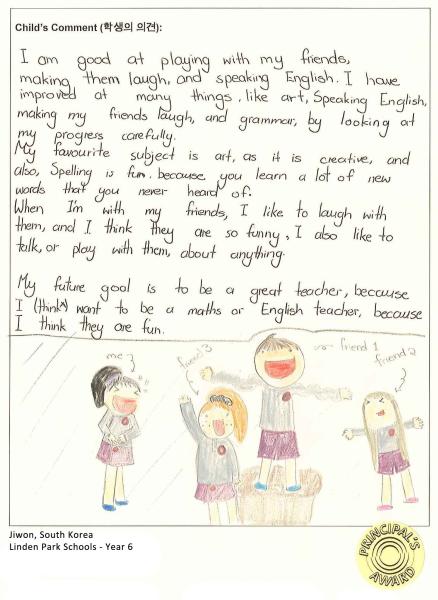 Child's Comment (학생의 의견):
I am good at playing with my friends,
making them laugh, and speaking English. I have
improved at many things, like art, Speaking English,
making my friends laugh, and grammar, by looking at
my progress carefully.
My favourite subject is art, as it is creative, and
also, Spelling is fun, because you learn a lot of new
words that you never heard of.
When I'm with my friends, I like to laugh with
them, and I think they are so funny, I also like to
talk, or play with them, about anything.
My future goal is to be a great teacher, because
I (think) want to be a maths or English teacher, because
I think they are fun.
me
friend 3
friend 1
friend 2
Jiwon, South Korea
Linden Park Schools - Year 6
PRINCIPAL'S
AWARD